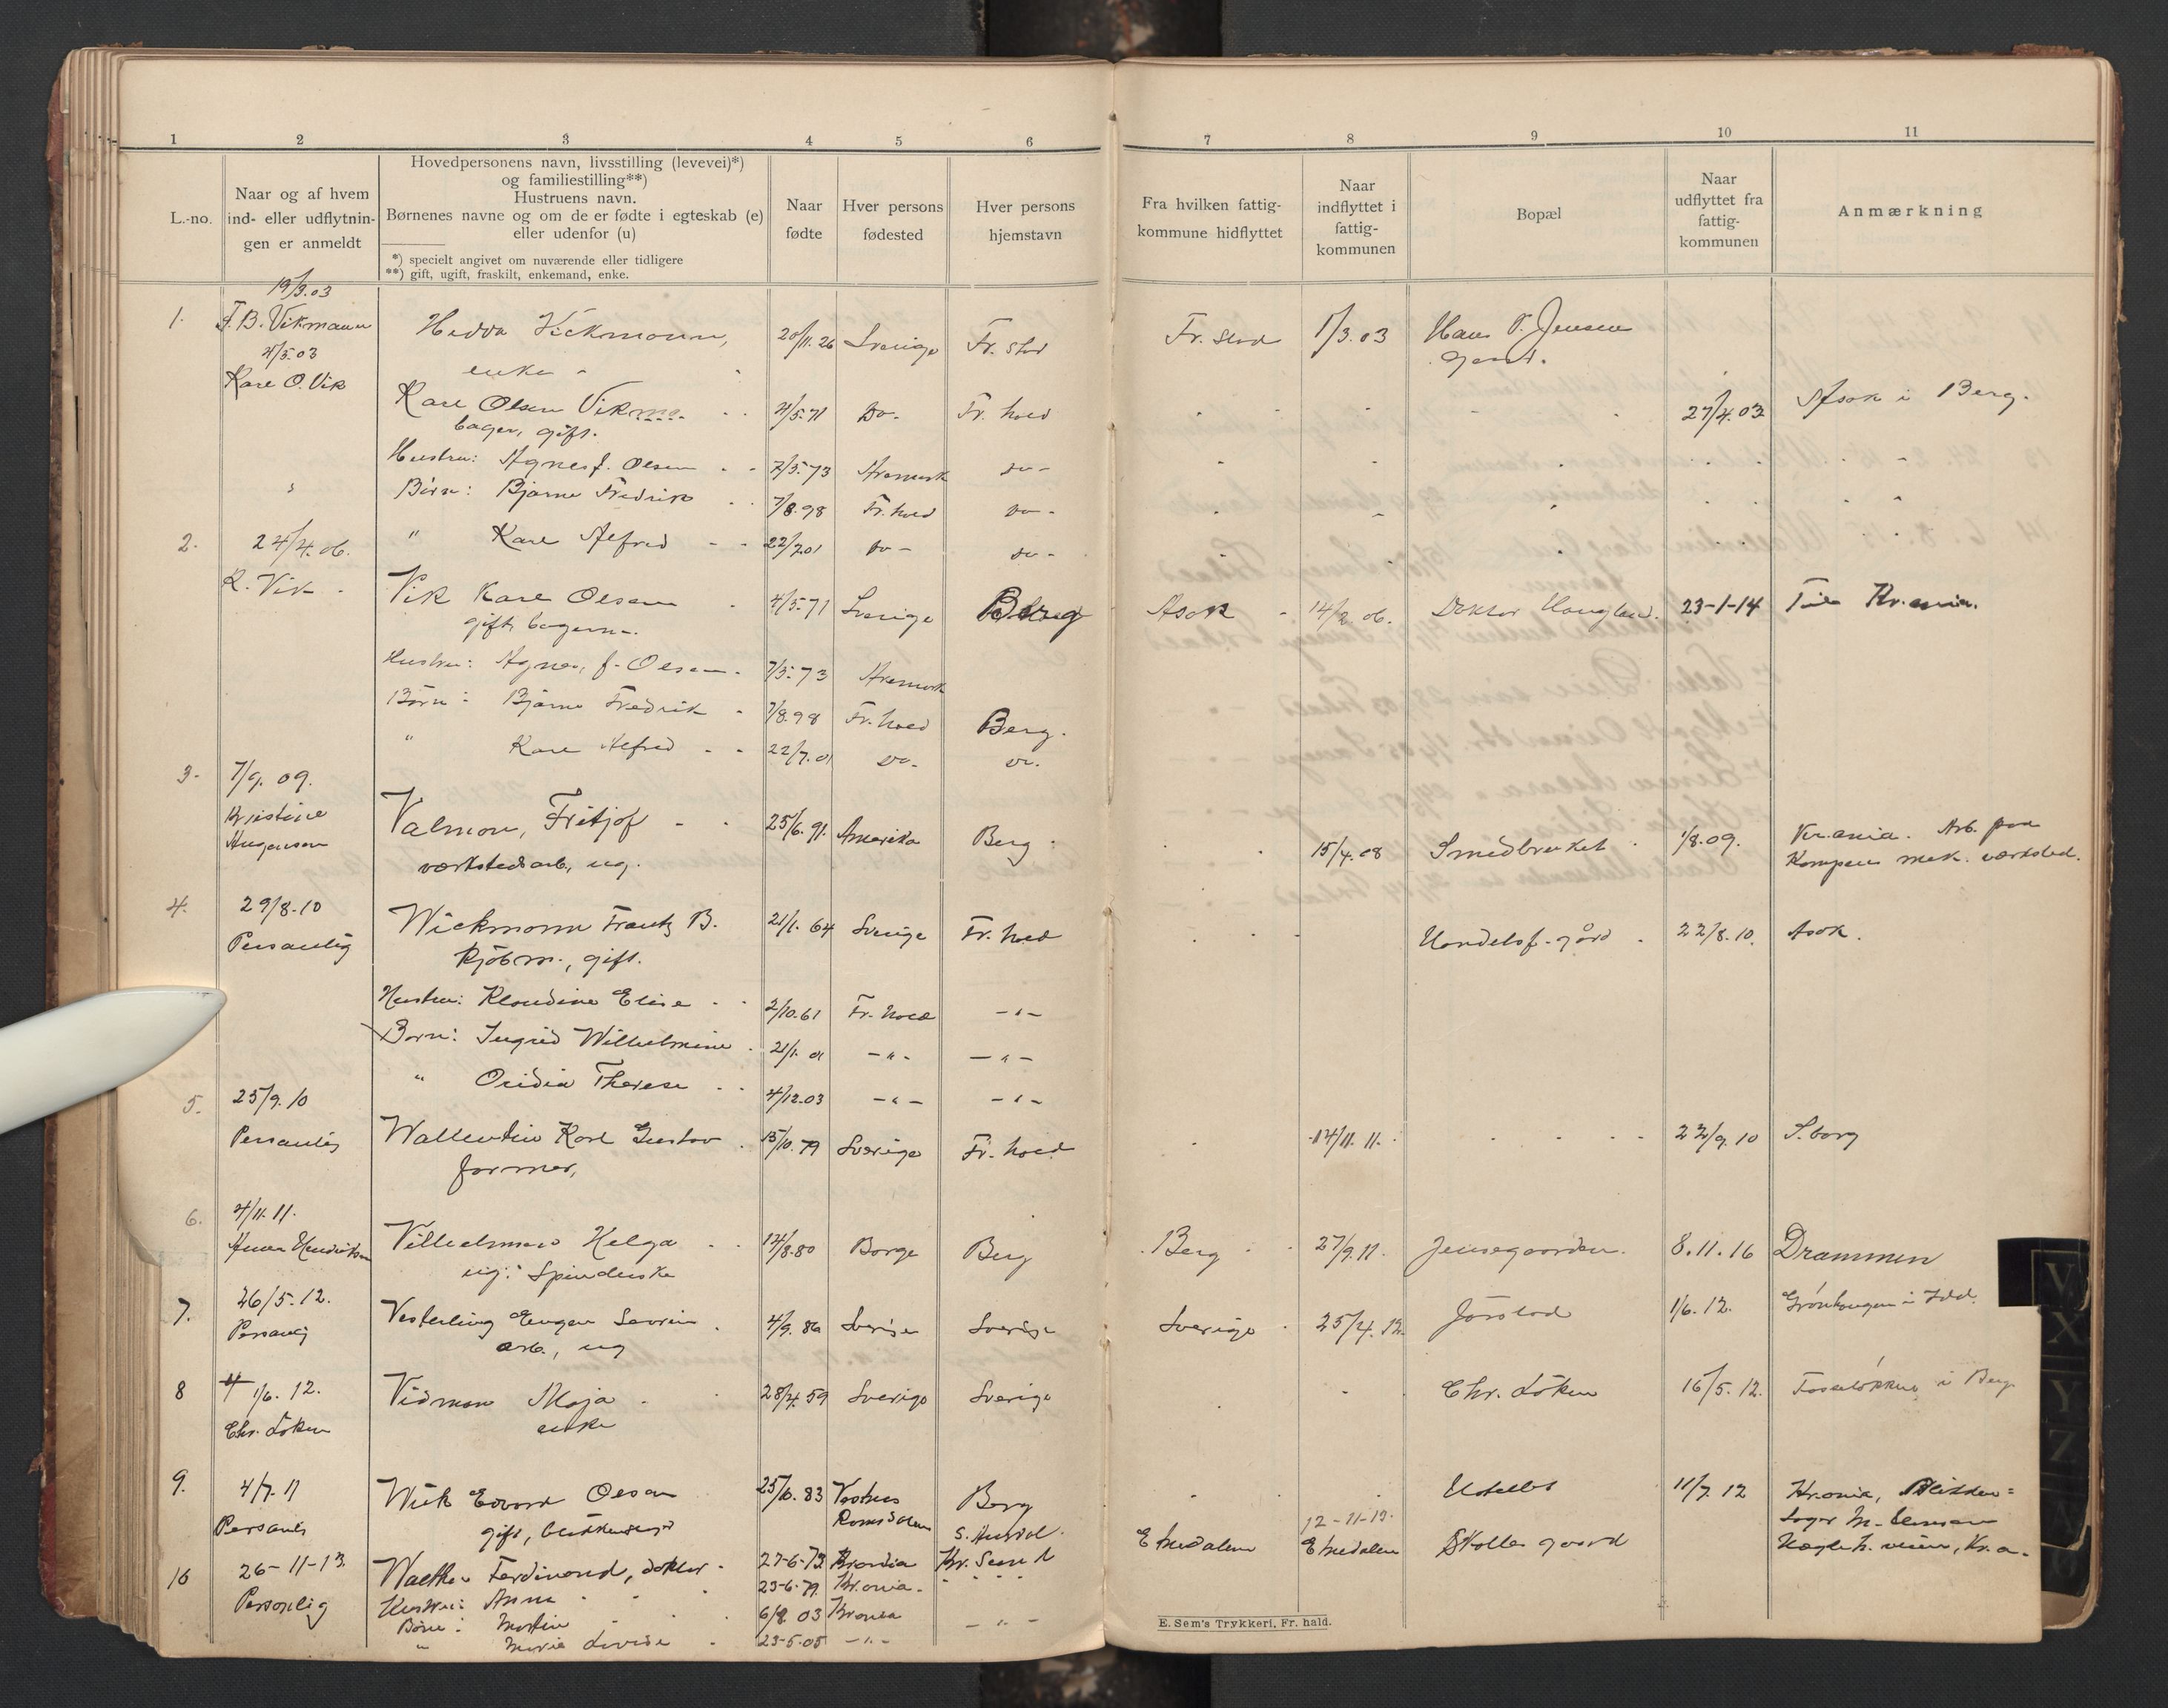 1 2 3 4 5 6 7 8 9 10 11
L.-no.
Naar og af hvem
ind- eller udflytnin-
gen er anmeldt
Hovedpersonens navn, livsstilling (levevei)*)
og familiestilling**)
Hustruens navn.
Børnenes navne og om de er fødte i egteskab (e)
eller udenfor (u)
*) specielt angivet om nuværende eller tidligere
**) gift, ugift, fraskilt, enkemand, enke.
Naar
fødte
Hver persons
fødested
Hver persons
hjemstavn
Fra hvilken fattig-
kommune hidflyttet
Naar
indflyttet i
fattig-
kommunen
Bopæl
Naar
udflyttet fra
fattig-
kommunen
Anmærkning
19/3.03
1. F.B. Vikmann Hedda Vickmann, 20/11.26 Sverige Fr. stad Fr. stad 1/3.03 Hans P. Jensen
4/5.03 enke gaard.
Karl O. Vik
Karl Olsen Vikman 4/5.71 Do- Fr. hald 27/4.03 Asak i Berg.
bager, gift.
Hustru: Agnes f. Olsen 7/5.73 Aremark do-
Börn: Bjarne Fredrik 7/8.98 Fr. hald do-
" Karl Alfred 22/7.01 do- do-
2. 24/4.06.
K. Vik. Vik Karl Olsen 4/5.71 Sverige Berg Asak 14/2 06. Doktor Haugland. 23-1-14 Til Kr.ania.
gift, bagerm.
Hustru: Agnes, f. Olsen 7/5.73 Aremark
Börn: Bjarne Fredrik 7/8.98 Fr. hald Berg.
" Karl Alfred 22/7.01 do- do.
3. 7/9.09.
Kristine Valmon, Fritjof 25/6.91. Amerika Berg 15/4.08 Smedbrukket 1/8.09. Kr.ania. Arb. paa
værkstedsarb, ug. Kampens mek. værksted.
4. 29/8.10
Personlig Wickmann Frantz B. 21/1.64 Sverige Fr. hald Handelsf.-gård 22/8.10. Asak.
Kjöbm., gift.
Hustru: Klaudine Elise 2/10.61 Fr. hald -"-
Börn: Ingrid Wilhelmine 21/1.01 -"- -"-
" Ovidia Therese 4/12.03 -"- -"-
5. 25/9.10
Personlig Wallentin Karl Gustav 15/10.79 Sverige Fr. hald 14/11.11. 22/9.10 S.borg
former,
6. 4/11.11.
Anna Hendriksen Villielmsen Helga 12/8.80 Borge Berg Berg 27/9.11. Jensegaarden. 8.11.16 Drammen
ug: Spinderske
7. 26/5.12.
Personlig Vesterling Eugen Severin 4/9.86 Sverige Sverige Sverige 25/4.12. Jörstad 1/6.12. Grönhaugen i Idd.
arb., ug
8 1/6.12. Vidman Maja 28/4.59 Sverige Sverige Chr. Löken 16/5.12. i Berg
Chr. Löken enke
9. 4/7.11 Wiik Edvard Olsen 25/10.83 Vestnes Berg 11/7.12 Kr.ania, Blikken=
Personlig gift, Romsdalen slager M.
S. Aurdal.
12-11-13.
10 26-11-13 Walther Ferdinand, doktor 27-6-73 Kr. Sund Etnedalen Etnedalen Skolle gaard
Personlig Hustru: Anna 23-6.79 Kr.ania.
Börn: Martin 6/8.03 Kr.ania -"-
" Marie Lovise 23-5.05 -"-
E. Sem's Trykkeri, Fr. hald.
V
X
Y
Z